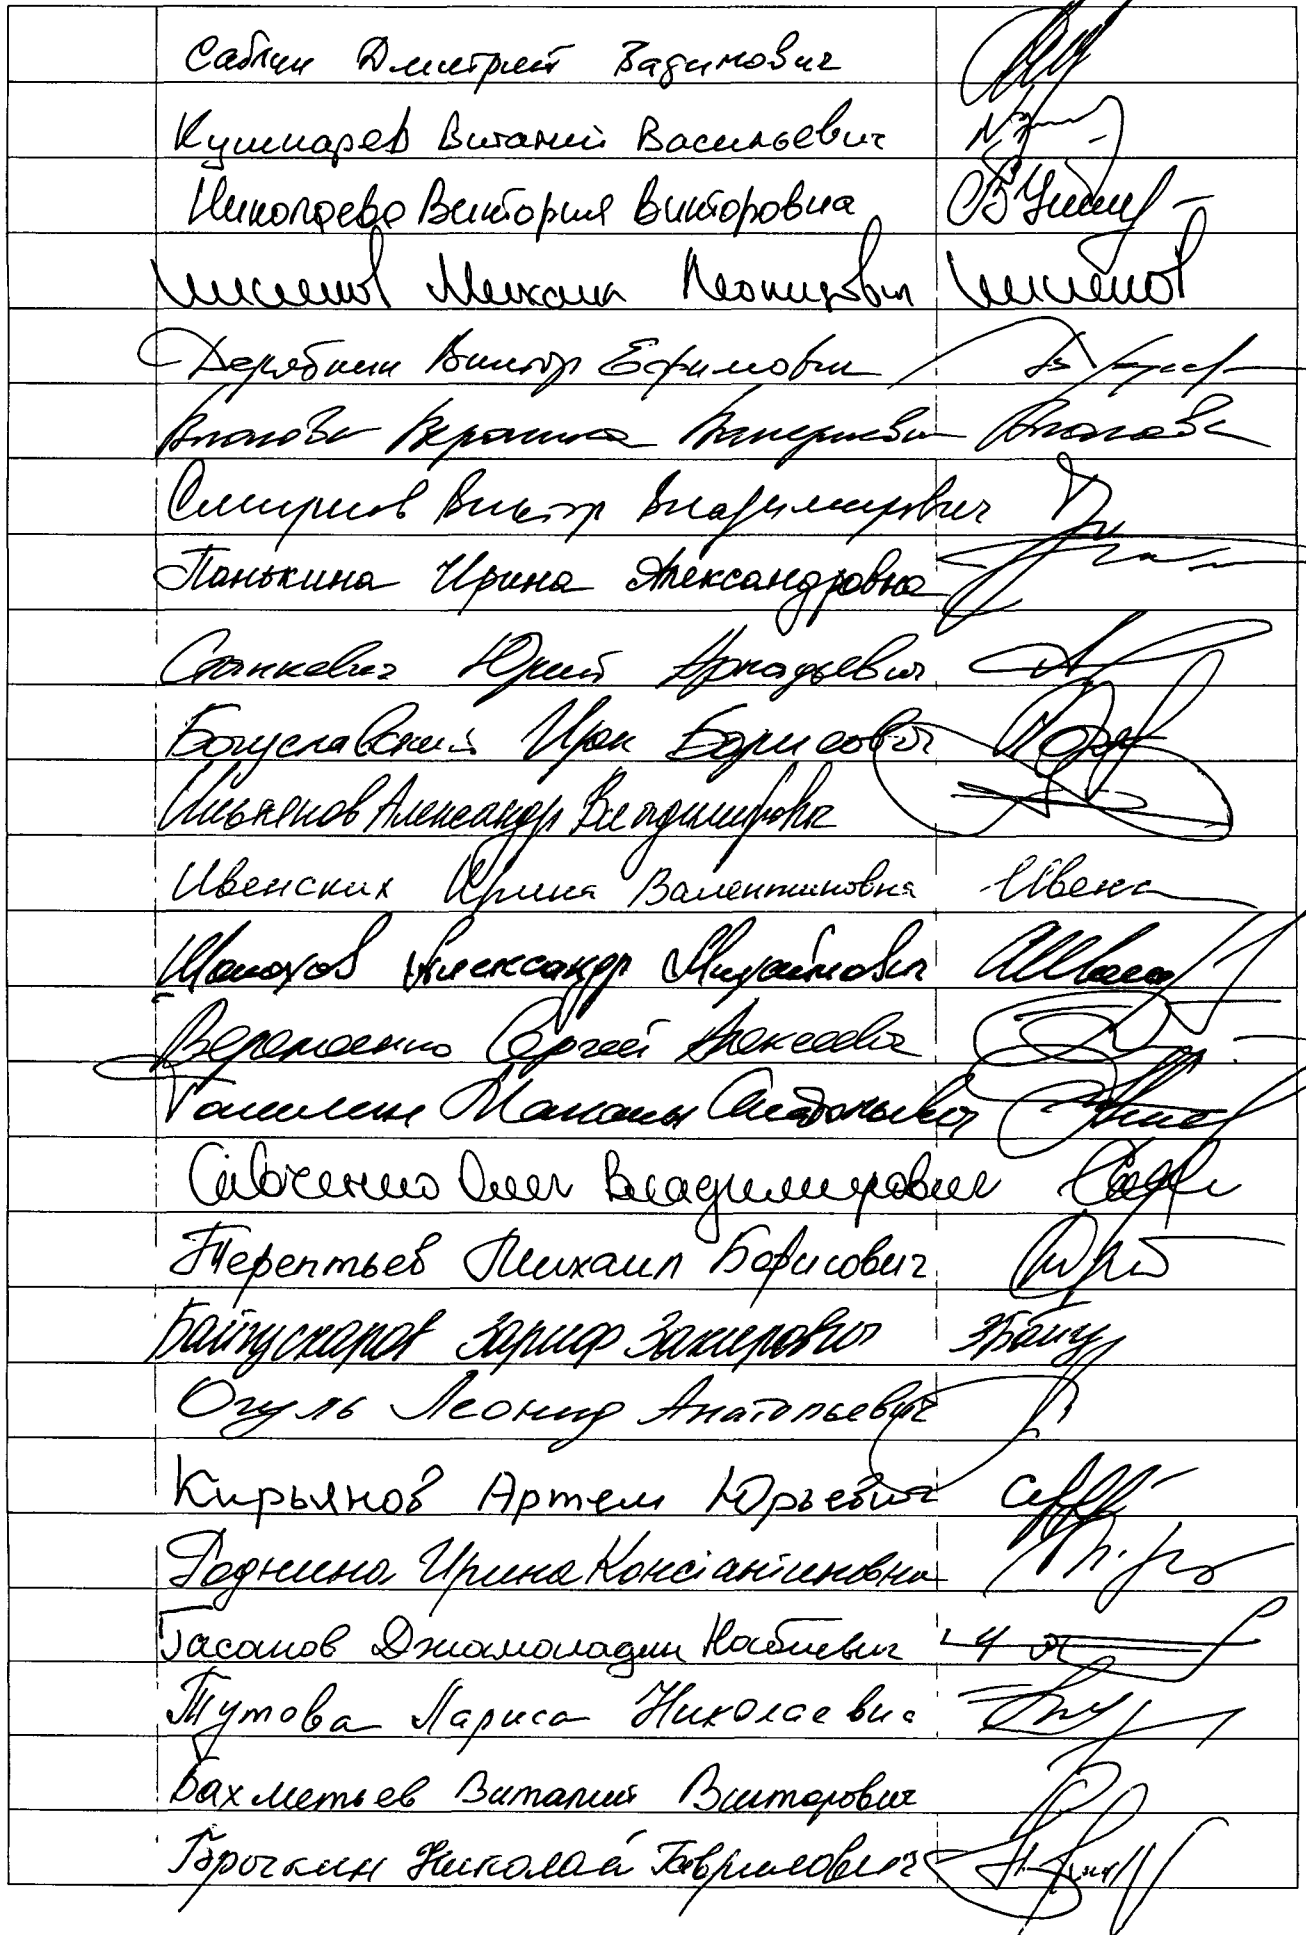 Саблин Дмитрий Вадимович
Кушнарев Виталий Васильевич
Николаева Виктория Викторовна
Шеменов Михаил Леонидович Шеменов
Дерябкин Виктор Ефимович
Власова Вероника Валериевна Власова
Смирнов Виктор Владимирович
Панькина Ирина Александровна
Станкевич Юрий Аркадьевич
Богуславский Ирек Борисович
Александр Владимирович
Ивенских Ирина Валентиновна Ивенс
Шолохов Александр Михайлович
Веремеенко Сергей Алексеевич
Гаширин Максим Анатольевич
Савченко Олег Владимирович
Терентьев Михаил Борисович
Байгускаров Зариф Закирович ЗБайгу
Огуль Леонид Анатольевич
Кирьянов Артем Юрьевич
Роднина Ирина Константиновна
Гасанов Джамаладин Набиевич
Тутова Лариса Николаевна
Бахметьев Виталий Викторович
Брыкин Николай Гаврилович